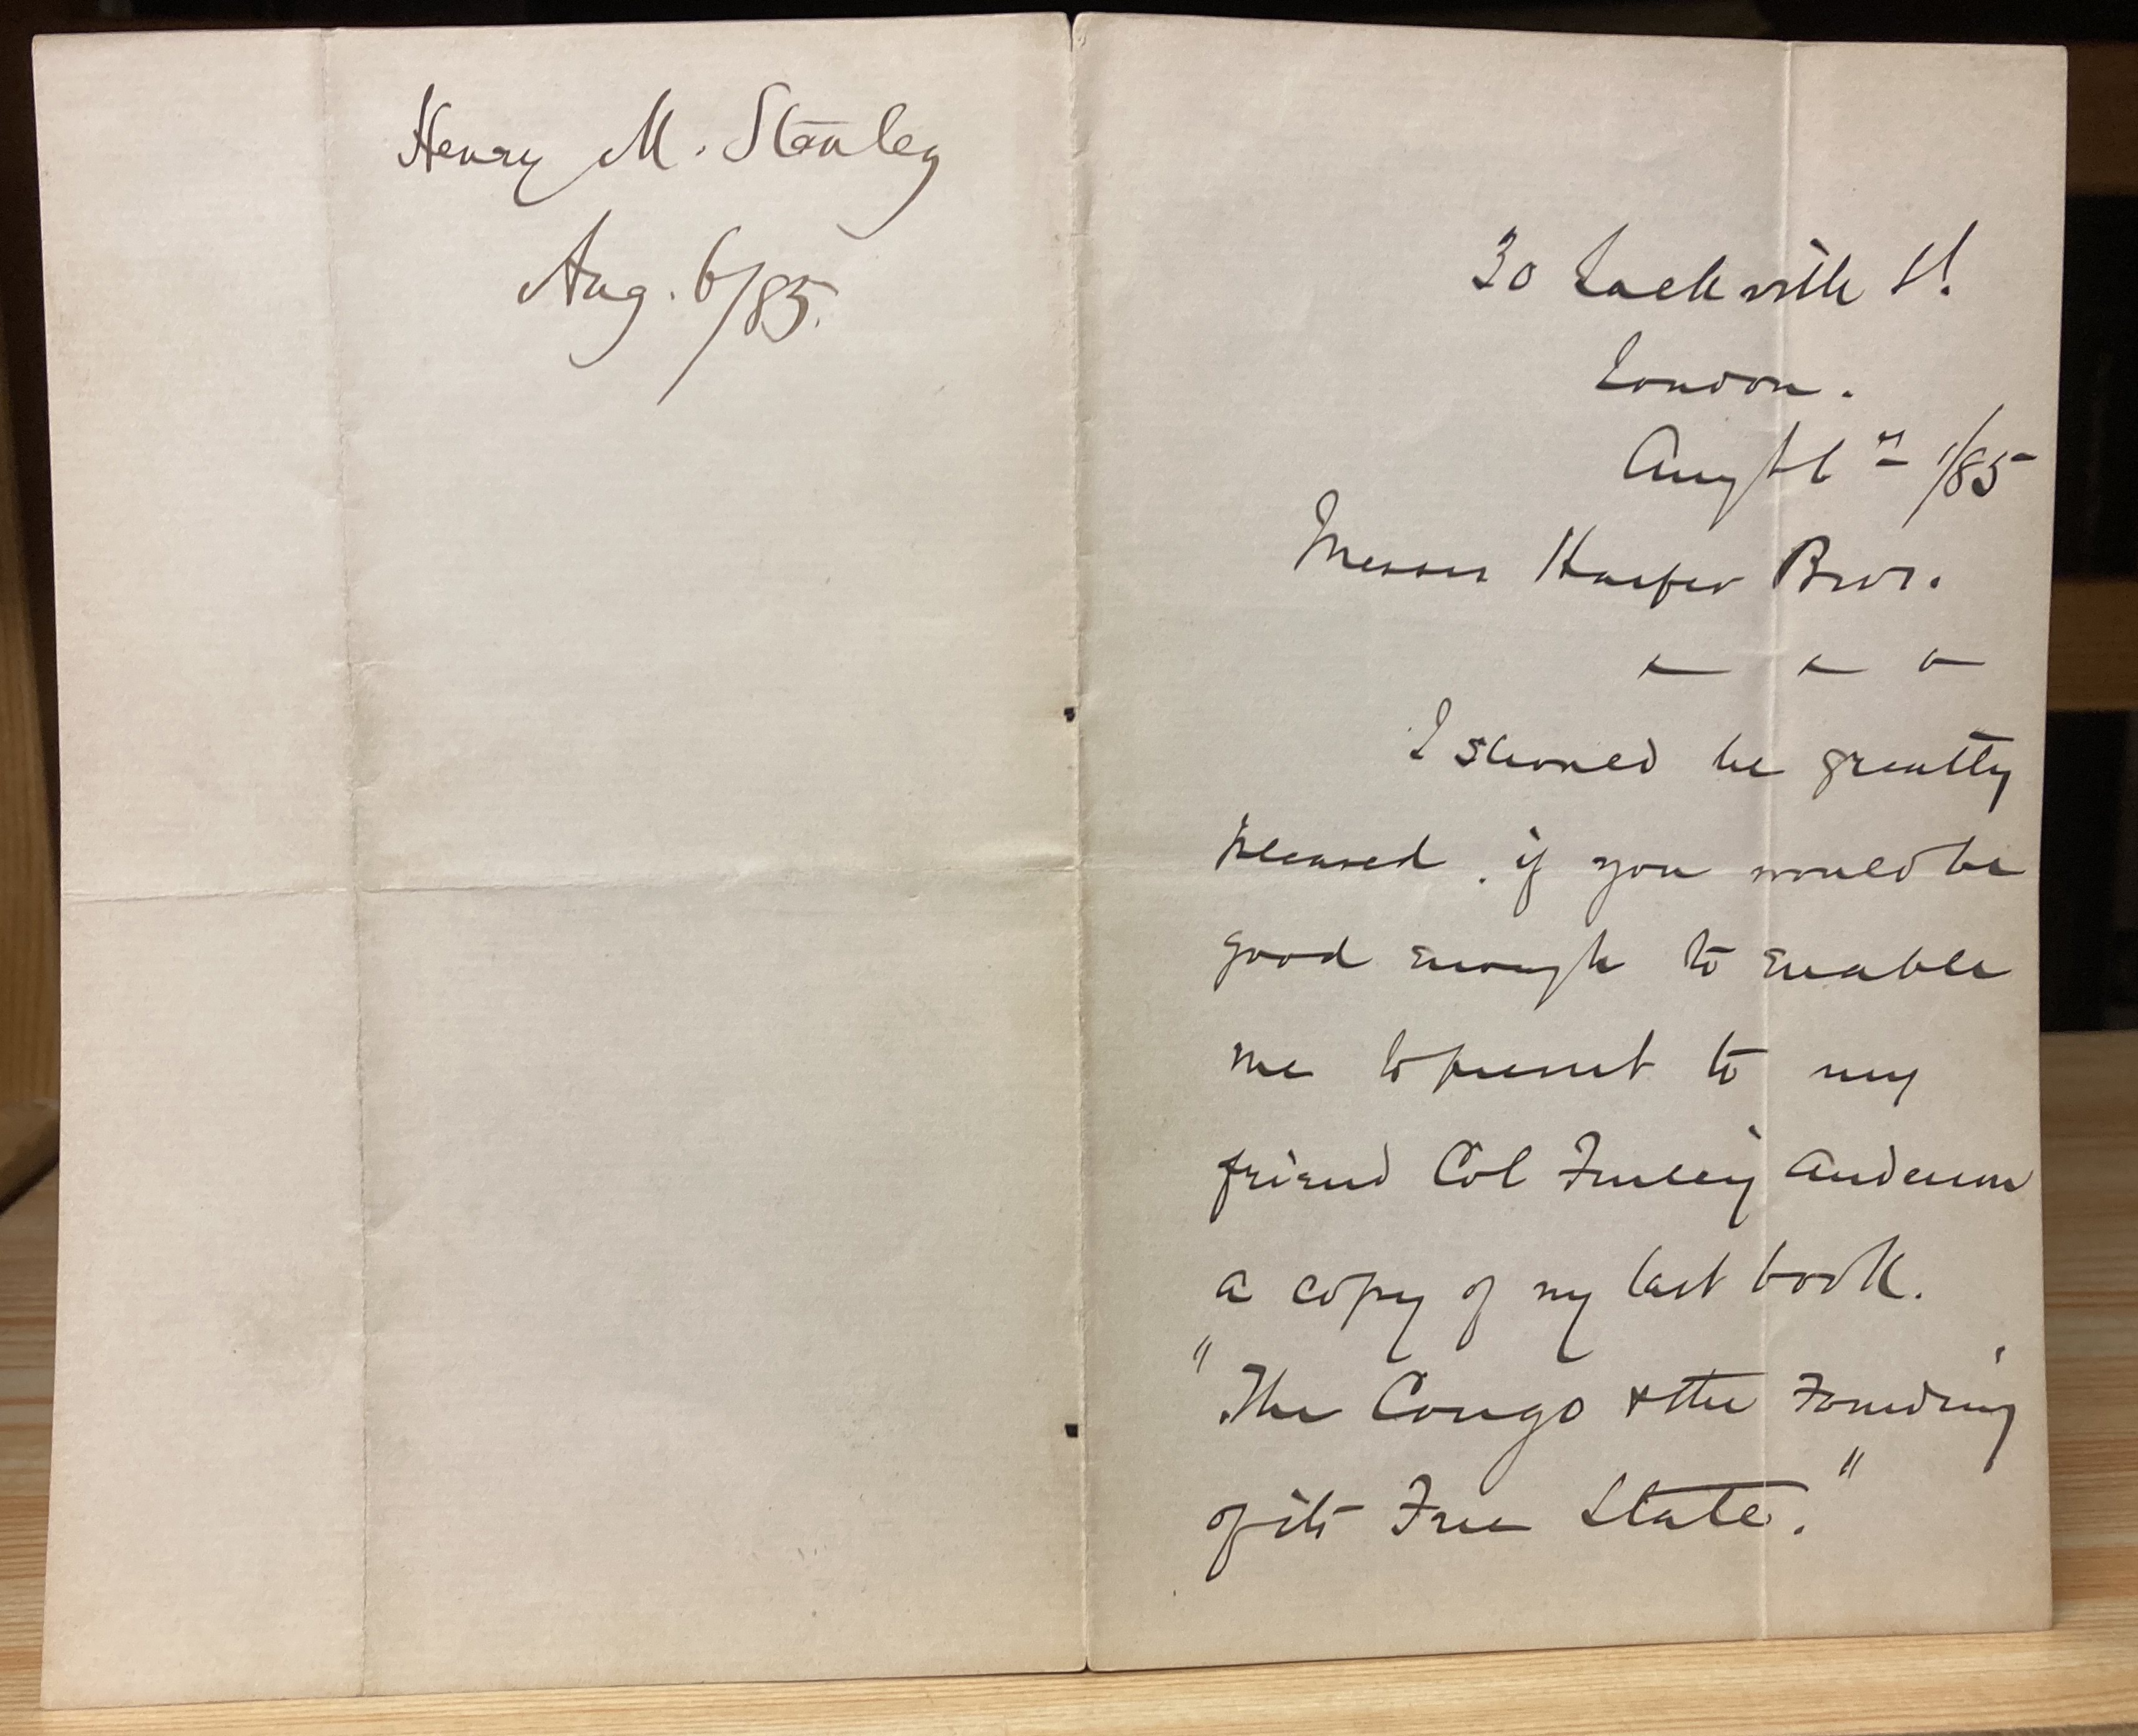 Henry M. Stanley
Aug. 6/85.
30 Sackville St.
London.
Augt 6th /85
Messrs Harper Bros.
I should be greatly
pleased. if you would be
good enough to enable
me to present to my
friend Col Finley Anderson
a copy of my last book.
"The Congo & the Founding
of its Free State."